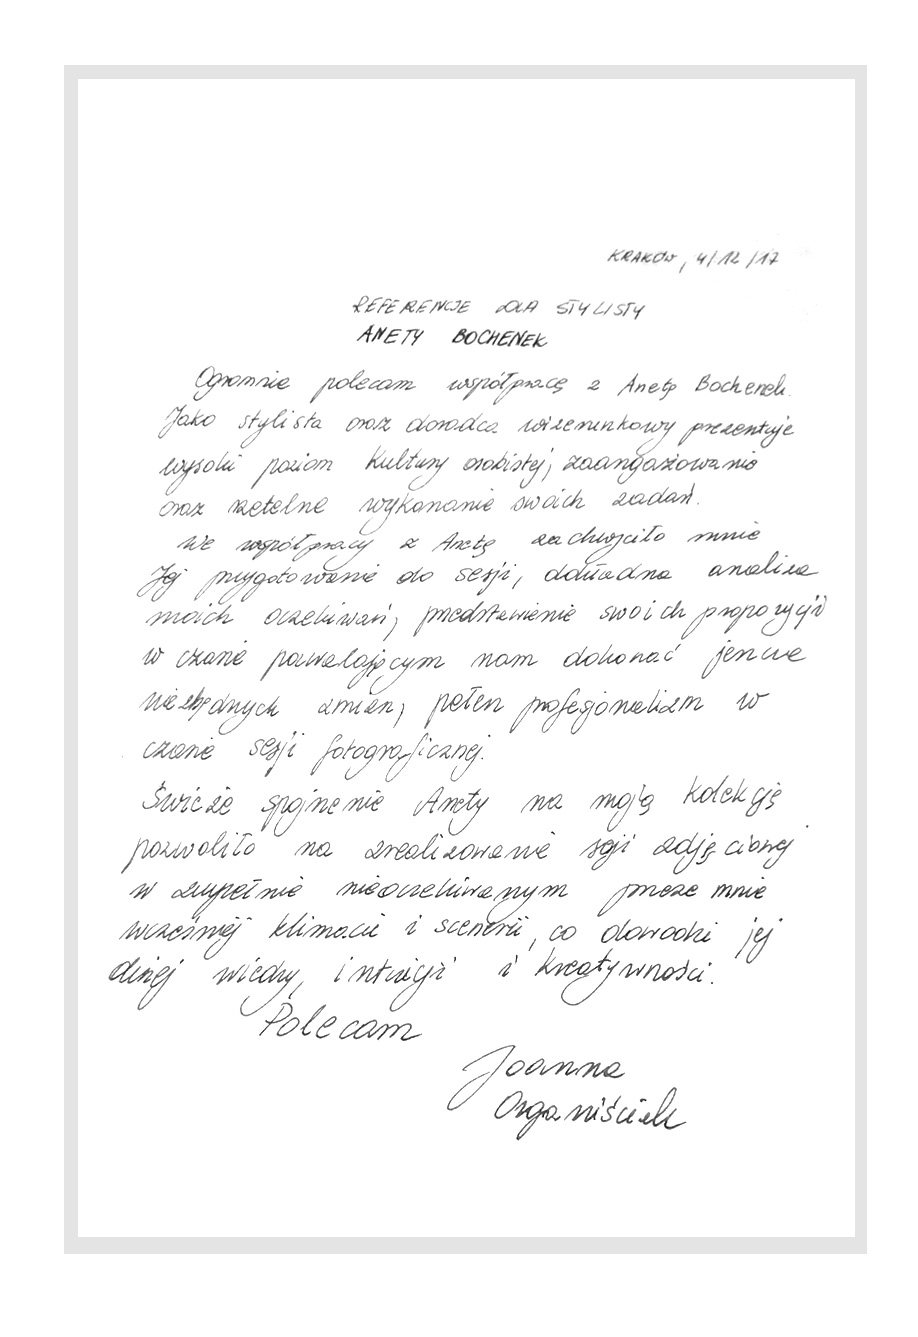 KRAKÓW, 4/12/17
REFERENCJE DLA STYLISTY
ANETY BOCHENEK
Ogromnie polecam współpracę z Anetą Bochenek.
Jako stylista oraz doradca wizerunkowy prezentuje
wysoki poziom kultury osobistej, zaangażowanie
oraz rzetelne wykonanie swoich zadań.
We współpracy z Anetą zachwyciło mnie
Jej przygotowanie do sesji, dokładna analiza
moich oczekiwań, przedstawienie swoich propozycji
w czasie pozwalającym nam dokonać jeszcze
niezbędnych zmian, pełen profesjonalizm w
czasie sesji fotograficznej.
Świeże spojrzenie Anety na moją kolekcję
pozwoliło na zrealizowanie sesji zdjęciowej
w zupełnie nieoczekiwanym przeze mnie
wcześniej klimacie i scenerii, co dowodzi jej
dużej wiedzy, intuicji i kreatywności.
Polecam
Joanna
Organiściak